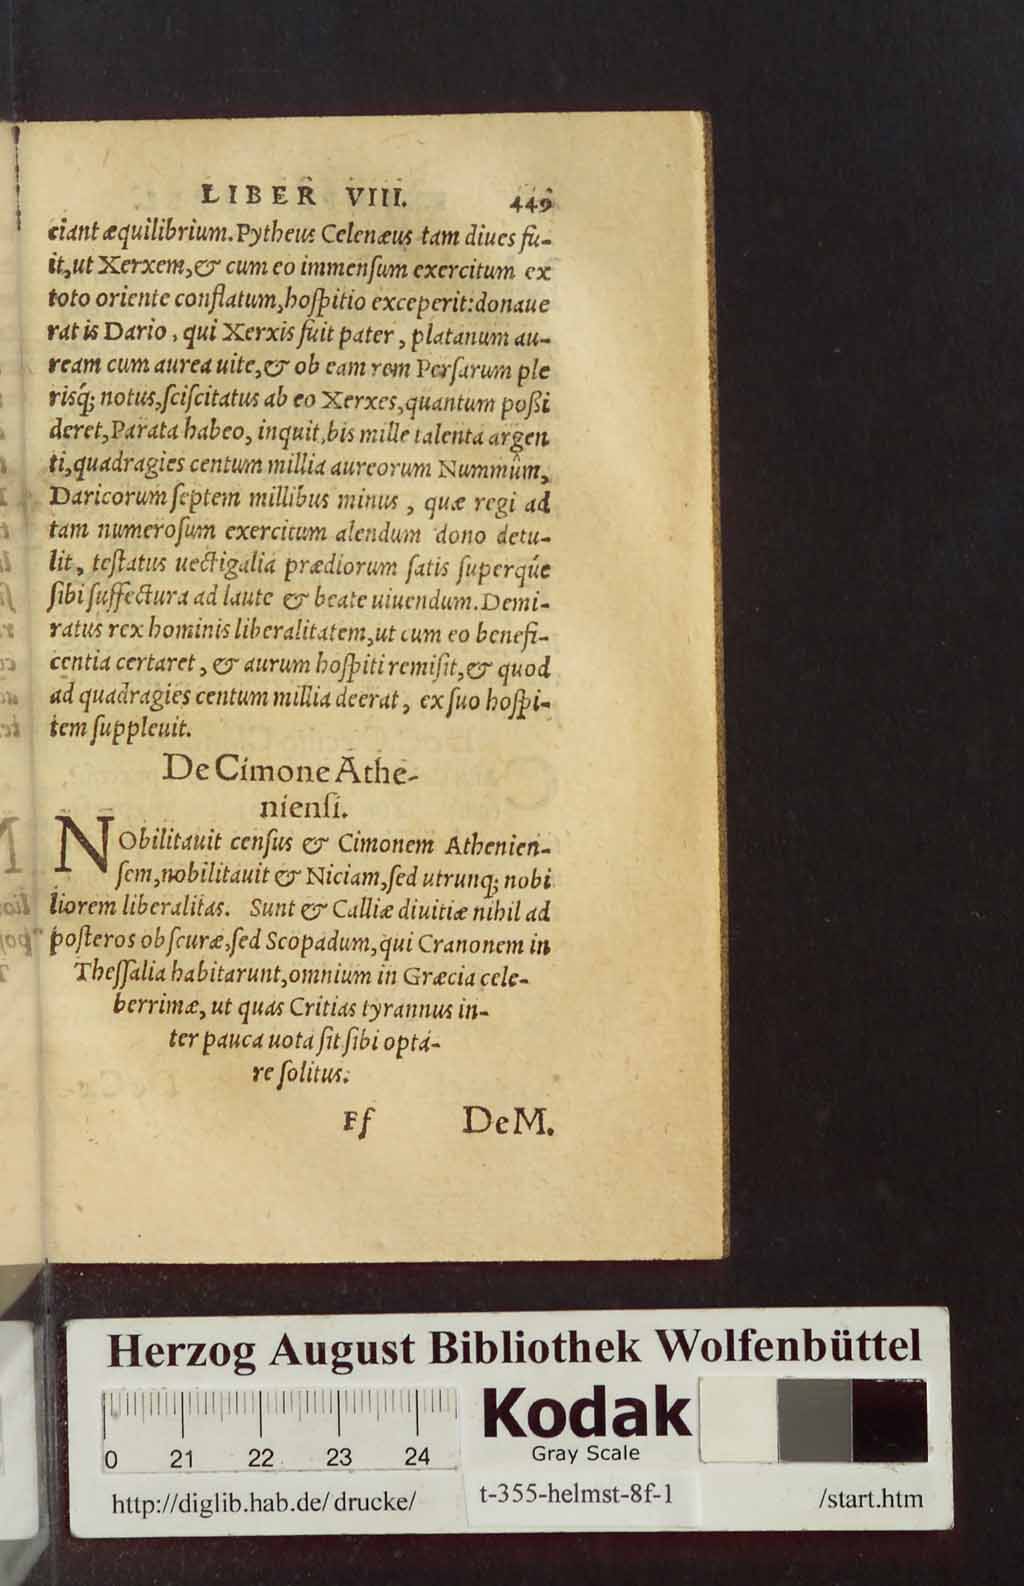 LIBER VIII. 449
ciant æquilibrium. Pytheus Celenæus tam diues fu-
it, ut Xerxem, & cum eo immensum exercitum ex
toto oriente conflatum, hospitio exceperit: donaue
rat is Dario, qui Xerxis fuit pater, platanum au-
ream cum aurea uite, & ob eam rem Persarum ple
risq; notus, sciscitatus ab eo Xerxes, quantum poßi
deret, Parata habeo, inquit, bis mille talenta argen
ti, quadragies centum millia aureorum Nummûm,
Daricorum septem millibus minus, quæ regi ad
tam numerosum exercitum alendum dono detu-
lit, testatus uectigalia prædiorum satis superqúe
sibi suffectura ad laute & beate uiuendum. Demi-
ratus rex hominis liberalitatem, ut cum eo benefi-
centia certaret, & aurum hospiti remisit, & quod
ad quadragies centum millia deerat, ex suo hospi-
tem suppleuit.
De Cimone Athe-
niensi.
NObilitauit census & Cimonem Athenien-
sem, nobilitauit & Niciam, sed utrunq; nobi
liorem liberalitas. Sunt & Calliæ diuitiæ nihil ad
posteros obscuræ, sed Scopadum, qui Cranonem in
Thessalia habitarunt, omnium in Græcia cele-
berrimæ, ut quas Critias tyrannus in-
ter pauca uota sit sibi opta-
re solitus.
Ff De M.
Herzog August Bibliothek Wolfenbüttel
Kodak
Gray Scale
0 21 22 23 24
http://diglib.hab.de/drucke/ t-355-helmst-8f-1 /start.htm